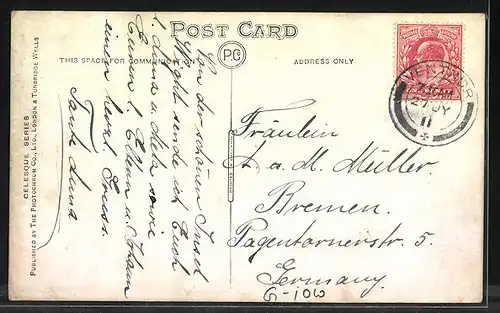 POST CARD
THIS SPACE FOR COMMUNICATION
PC
ADDRESS ONLY
CELESQUE SERIES
PUBLISHED BY THE PHOTOCHROM CO., LTD., LONDON & TUNBRIDGE WELLS
VENTNOR
27 JY
11
Von der schönen Insel
Wight sende ich Euch
l. Anna u. Meta sowie
Euren l. Eltern u.
einen herzl. Gruss.
Tante Anna
Fräulein
A. u. M. Müller.
Bremen.
Pagentornerstr. 5.
Germany.